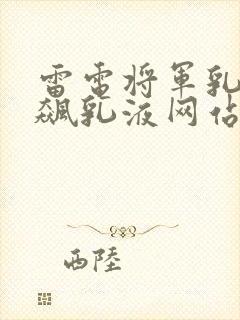 雷电将军乳
飙乳液网佔
西陸